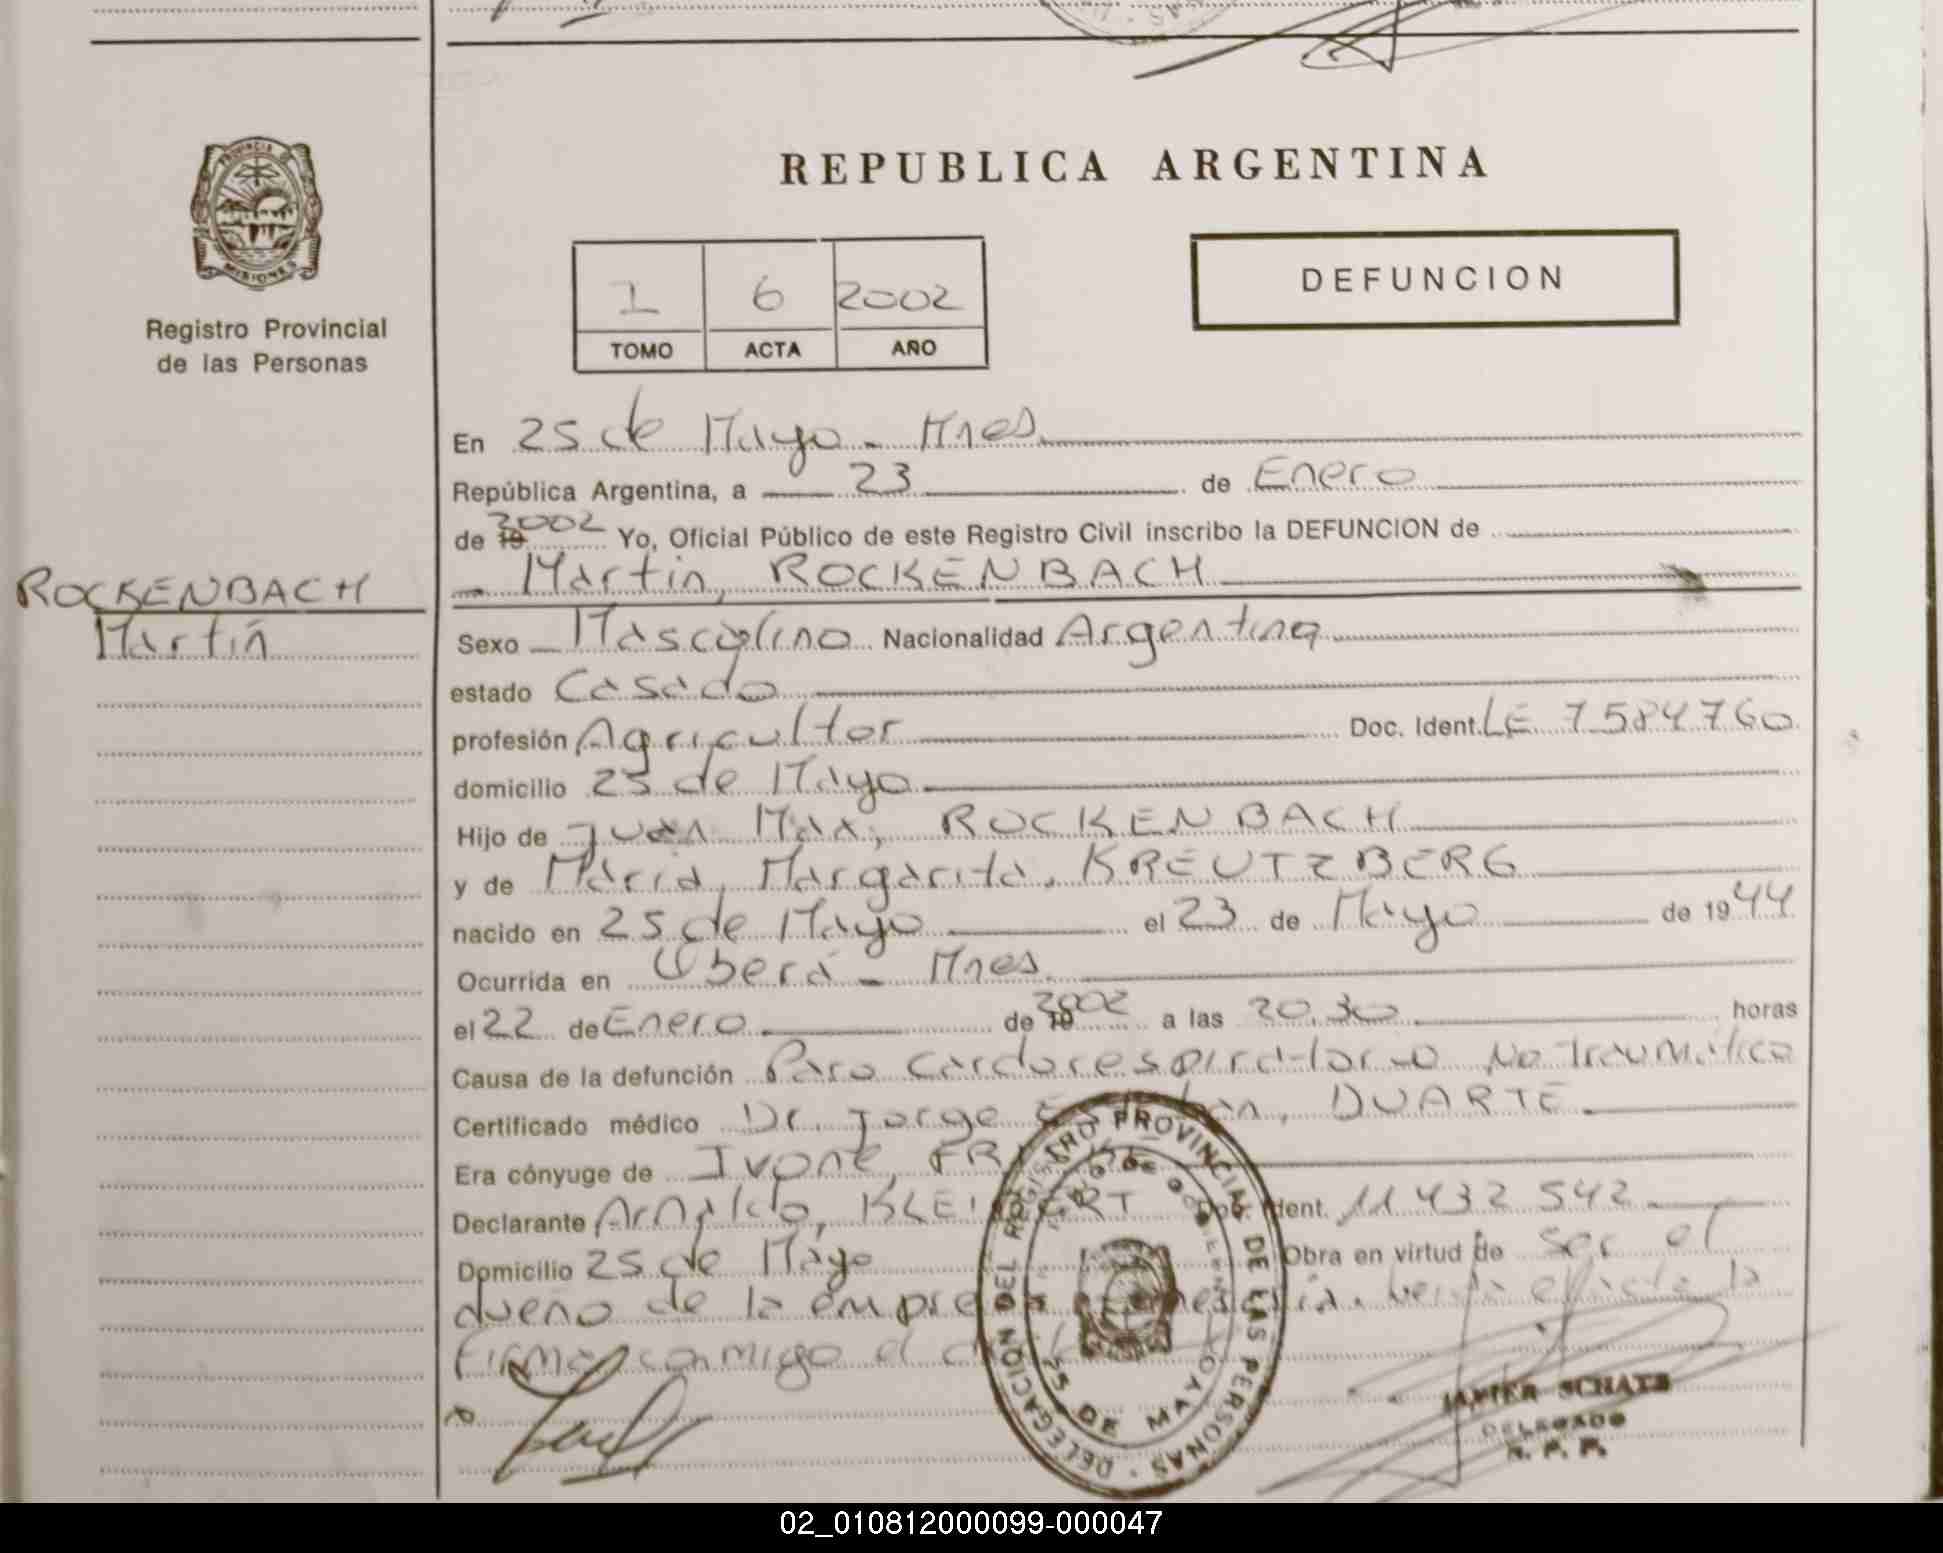 REPUBLICA ARGENTINA
PROVINCIA DE
MISIONES
Registro Provincial
de las Personas
1 6 2002
TOMO ACTA AÑO
DEFUNCION
En 25 de Mayo - Mnes.
República Argentina, a 23 de Enero
de 19 2002 Yo, Oficial Público de este Registro Civil inscribo la DEFUNCION de
Martin, ROCKENBACH
ROCKENBACH
Martín
Sexo Masculino Nacionalidad Argentina
estado Casado
profesión Agricultor Doc. Ident. LE 7584760
domicilio 25 de Mayo
Hijo de Juan Max, ROCKENBACH
y de Maria, Margarita, KREUTZBERG
nacido en 25 de Mayo el 23 de Mayo de 1944
Ocurrida en Oberá - Mnes.
el 22 de Enero de 19 2002 a las 20.30 horas
Causa de la defunción Paro cardorespiratorio No Traumático
Certificado médico Dr. Jorge DUARTE
Era cónyuge de Ivone,
Declarante Arnaldo, Doc. Ident. 11 432 542
Domicilio 25 de Mayo Obra en virtud de ser el
dueño de la empresa la
firma conmigo el
DELEGACION DEL REGISTRO PROVINCIAL DE LAS PERSONAS
25 DE MAYO
JAVIER SCHATZ
DELEGADO
R. P. P.
02_010812000099-000047